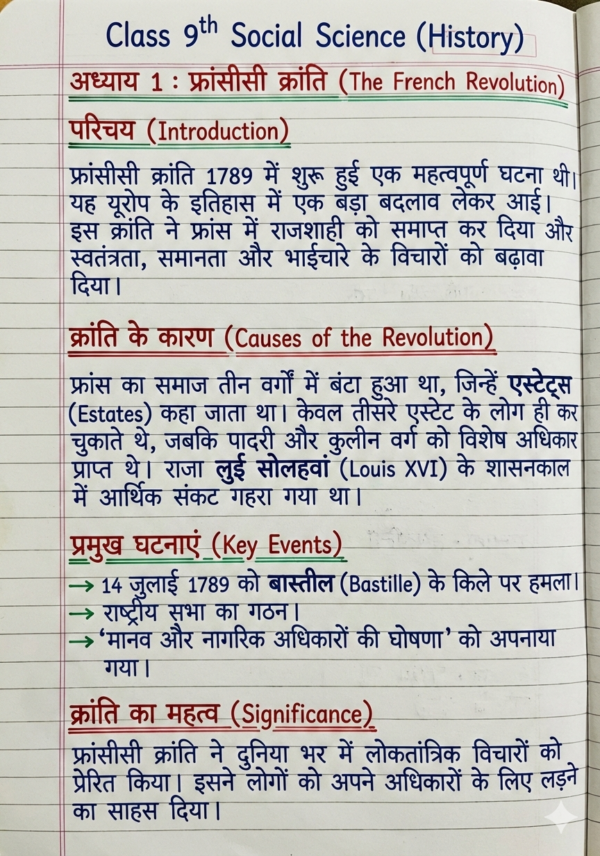 Class 9th Social Science (History)
अध्याय 1 : फ्रांसीसी क्रांति (The French Revolution)
परिचय (Introduction)
फ्रांसीसी क्रांति 1789 में शुरू हुई एक महत्वपूर्ण घटना थी।
यह यूरोप के इतिहास में एक बड़ा बदलाव लेकर आई।
इस क्रांति ने फ्रांस में राजशाही को समाप्त कर दिया और
स्वतंत्रता, समानता और भाईचारे के विचारों को बढ़ावा
दिया।
क्रांति के कारण (Causes of the Revolution)
फ्रांस का समाज तीन वर्गों में बंटा हुआ था, जिन्हें एस्टेट्स
(Estates) कहा जाता था। केवल तीसरे एस्टेट के लोग ही कर
चुकाते थे, जबकि पादरी और कुलीन वर्ग को विशेष अधिकार
प्राप्त थे। राजा लुई सोलहवां (Louis XVI) के शासनकाल
में आर्थिक संकट गहरा गया था।
प्रमुख घटनाएं (Key Events)
→ 14 जुलाई 1789 को बास्तील (Bastille) के किले पर हमला।
→ राष्ट्रीय सभा का गठन।
→ ‘मानव और नागरिक अधिकारों की घोषणा’ को अपनाया
गया।
क्रांति का महत्व (Significance)
फ्रांसीसी क्रांति ने दुनिया भर में लोकतांत्रिक विचारों को
प्रेरित किया। इसने लोगों को अपने अधिकारों के लिए लड़ने
का साहस दिया।